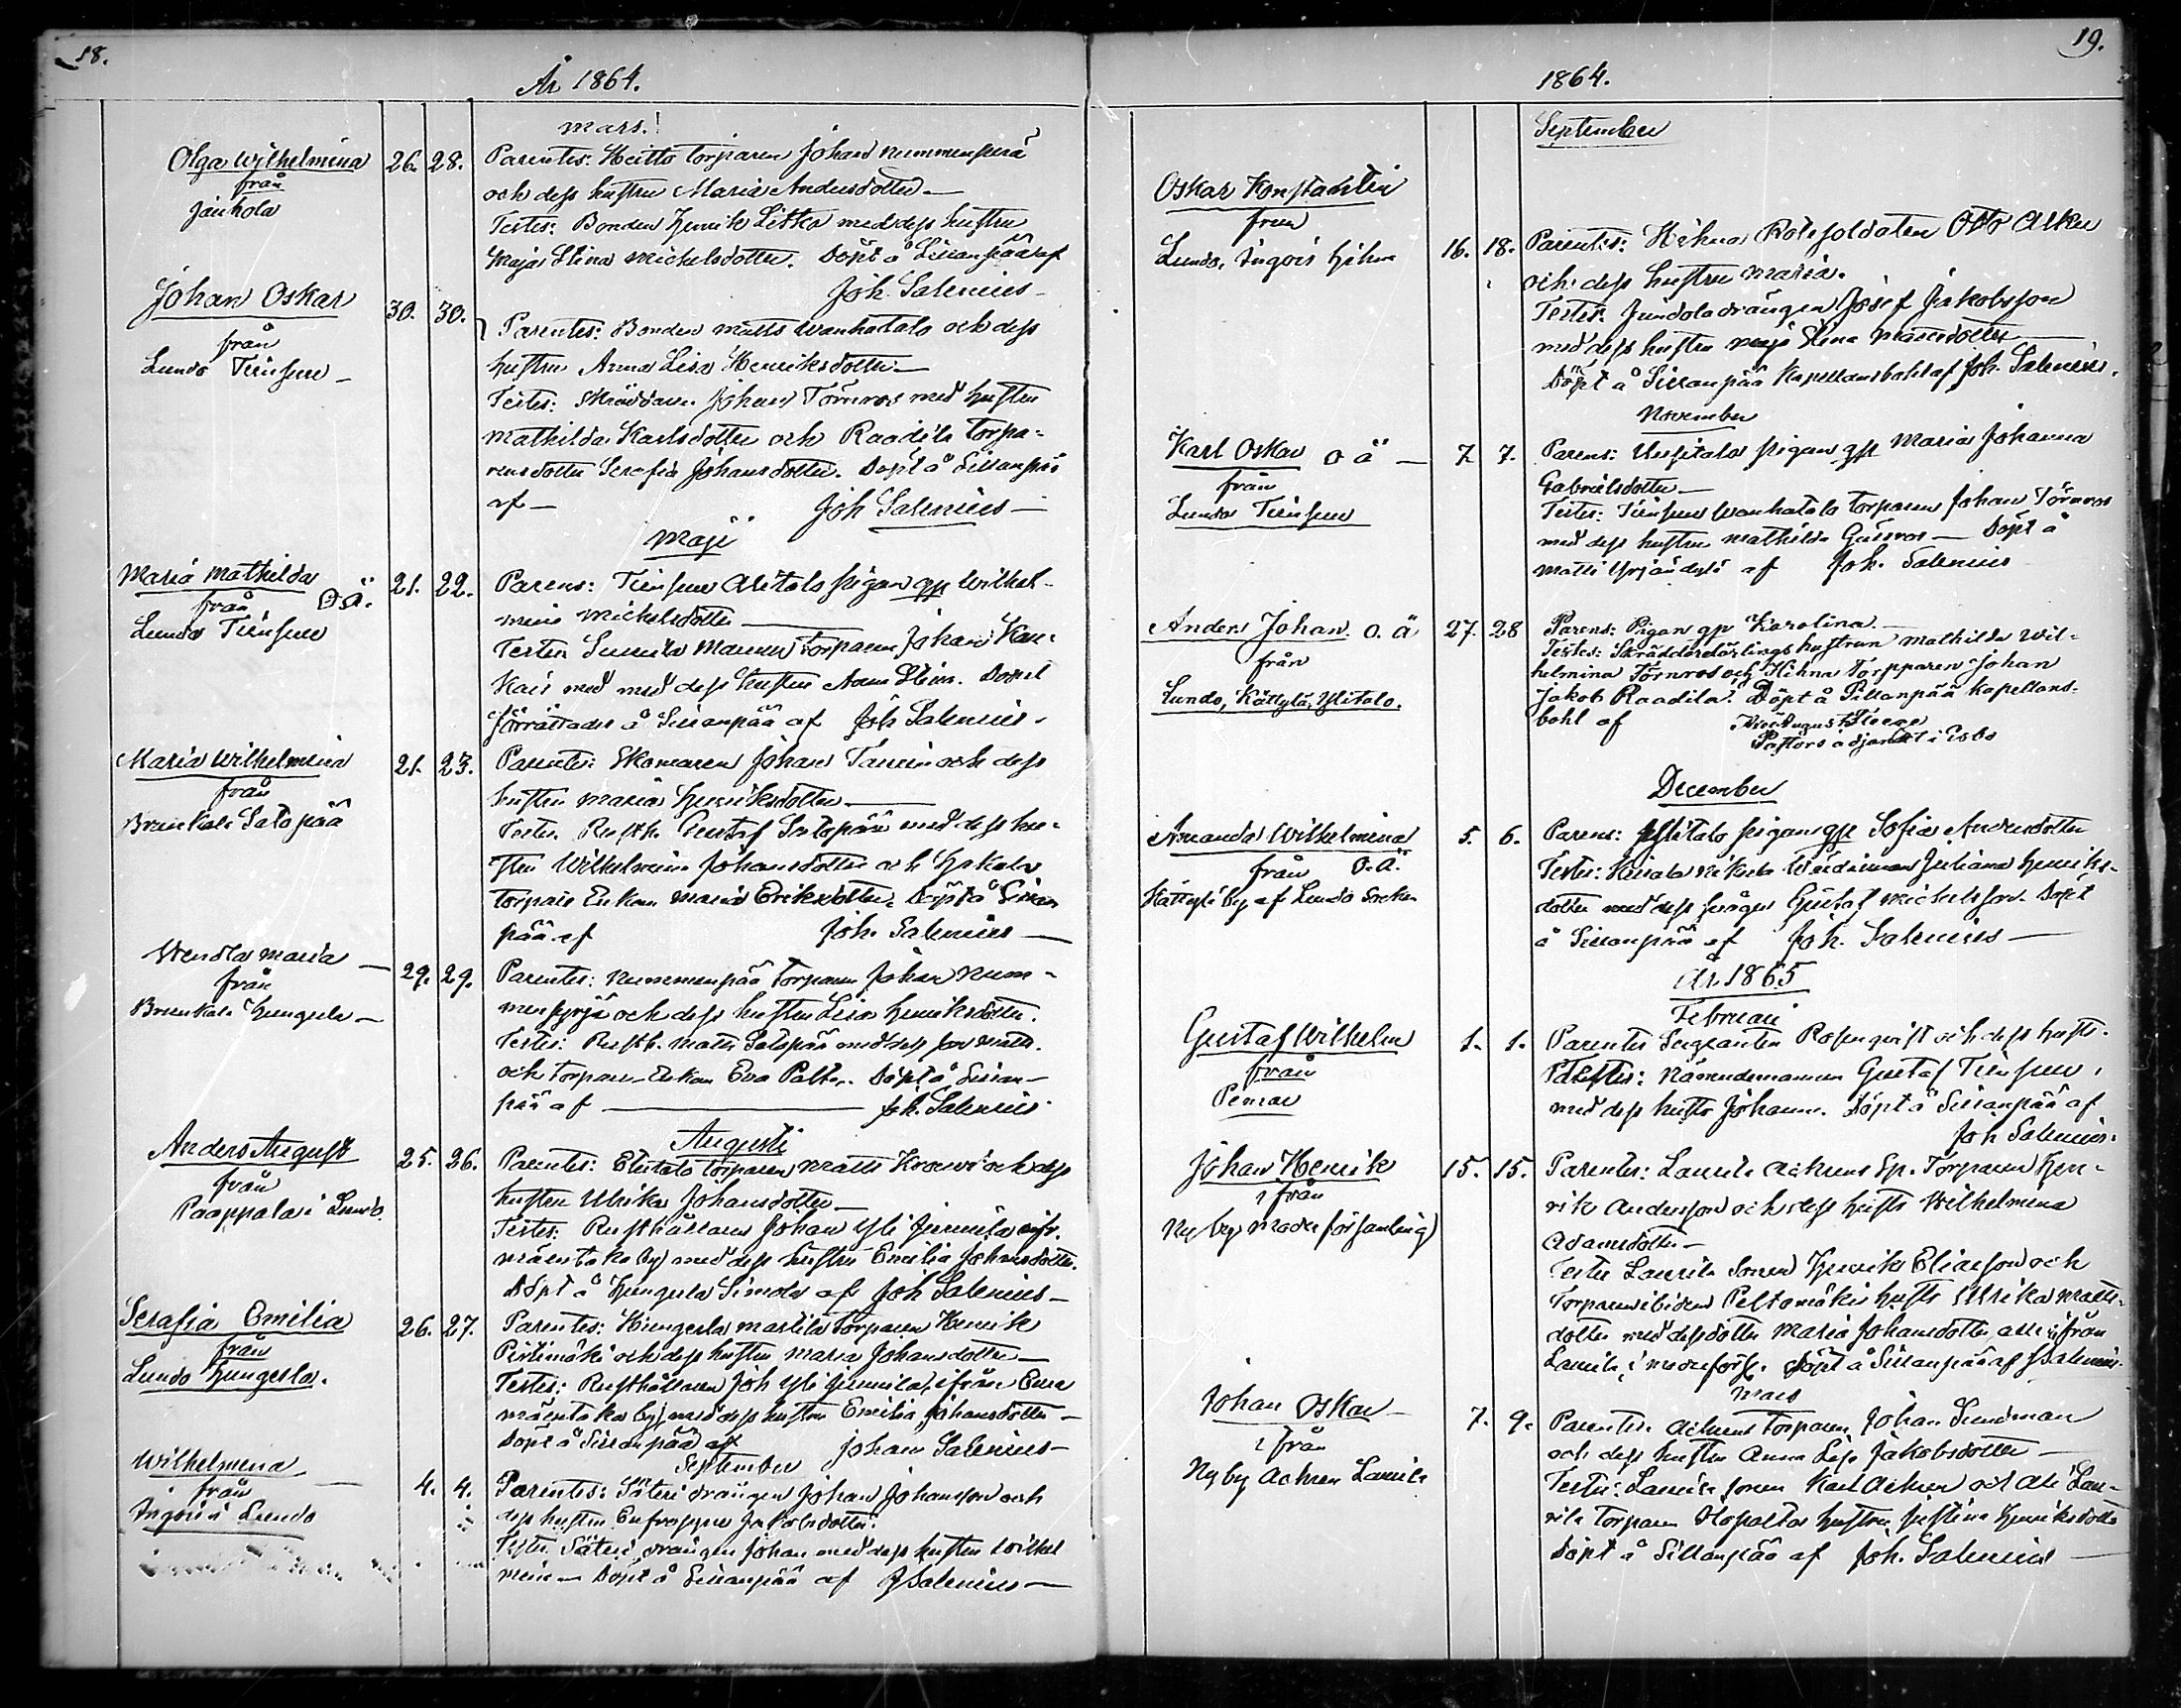 18.
År 1864.
Mars.
Olga Wilhelmina 26. 28. Parentes: Heitto torparen Johan Nummenperä
från
och dess hustru Maria Andersdotter
Jäukola
Testes: Bonden Henrik Litka med dess hustru
Maja Stina Michelsdotter. Döpt å Sillanpää af
Joh. Salenius
Johan Oskar 30. 30. Parentes: Bonden Matts Wanhatalo och dess
från
hustru Anna Lisa Henriksdotter
Lundo Tiensuu
Testes: Skräddaren Johan Törnros med hustru
Mathilda Karlsdotter och Raadila torpa-
rensdotter Serafia Johansdotter. Döpt å Sillanpää
af Joh Salenius
Maji
Maria Mathilda O. ä. 21. 22. Parens: Tiensuu Alitalo pigan gp Wilhel-
från
mina Michelsdotter
Lundo Tiensuu
Testes torparen Johan
med med dess hustru Anna Stina. Dopet
förrättades å Sillanpää af Joh Salenius
Maria Wilhelmina 21. 23. Parentes: Skomaren Johan och dess
från
hustru Maria Henriksdotter
Brunkala Satopää
Testes Rusth. Gustaf Satopää med dess hu-
stru Wilhelmina Johansdotter och
torpare Enkan Maria Eriksdotter. Döpt å Sillan
pää af Joh. Salenius
Wendla Maria 29. 29. Parentes: Nummenpää torparen Johan Num-
från
och dess hustru Lisa Henriksdotter.
Brunkala Hungerla
Testes: Rusth. Matts Satopää med dess son Matts.
och torpare-Enkan Eva Palta. Döpt å Sillan-
pää af Joh. Salenius
Augusti
Anders August 25. 26. Parentes: torparen Matts och dess
från
hustru Ulrika Johansdotter
Paappala i Lundo
Testes: Rusthållaren Johan Yli Junnila
by med dess hustru Emilia Johansdotter.
Döpt å Hungerla Simola af Joh Salenius
Serafia Emilia 26. 27. Parentes: Hungerla Marttila torparen Henrik
från
Pirtimäki och dess hustru Maria Johansdotter
Lundo Hungerla.
Testes: Rusthållaren Joh Yli Junnila, ifrån
by med dess hustru Emilia Johansdotter
Döpt å Sillanpää af Johan Salenius
September
Wilhelmina 4. 4. Parentes: Säteri drängen Johan Johansson och
från
dess hustru Jakobsdotter.
Ingois i Lundo
Testes Säteri drängen Johan med dess hustru Wilhel
mina Döpt å Sillanpää af J Salenius
19.
1864.
September
Oskar Konstantin
från
Lundo, Ingois Hihna 16. 18. Parentes: Hihna Rotesoldaten Otto Alku
och dess hustru Maria.
Testes: Jundola drängen Josef Jakobsson
med dess hustru Maja Stina
Döpt å Sillanpää Kapellansbohl af Joh. Salenius.
November
Karl Oskar O ä 7. 7. Parens: Uusitalo pigan gp Maria Johanna
från
Gabrielsdotter
Lundo Tiensuu
Testes: Tiensuu Wanhatalo torparen Johan Törnros
med dess hustru Mathilda Döpt å
Matti af Joh. Salenius
Anders Johan. O. ä 27. 28 Parens: Pigan gp Karolina.
från
Testes: Skräddarelärlings hustrun Mathilda Wil-
helmina Törnros och Hihna Torpparen Johan
Lundo, Kättylä, Ylitalo.
Jakob Raadila. Döpt å Sillanpää Kapellans-
bohl af August
Pastors adjunkt i Esbo
December
Amanda Wilhelmina 5. 6. Parens: Ylitalo pigan gp Sofia Andersdotter
från O. Ä.
Testes: Juliana Henriks-
Kättylä by af Lundo Socken
dotter med dess Gustaf Michelsson. Döpt
å Sillanpää af Joh. Salenius
År 1865
Februari
Gustaf Wilhelm 1. 1. Parentes Sergeanten Rosenqvist och dess hust.
från
Testes: Nämndemannen Gustaf Tiensuu,
Pemar
med dess hustr Johanna. Döpt å Sillanpää af
Joh Salenius.
Johan Henrik 15. 15. Parentes: Laurila Torparen Hen-
ifrån
rik Andersson och dess hustr Wilhelmina
Nyby Moderförsamling
Adamsdotter
Testes Laurila Sonen Henrik Eliasson och
Torparen ibidem Peltomäkis hustr Ulrika Matts-
dotter med dess dotter Maria Johansdotter alla ifrån
Laurila i moderförs. Döpt å Sillanpää af J Salenius.
Mars
Johan Oskar 7. 9. Parentes: torparen Johan Sundman
ifrån
och dess hustru Anna Lisa Jakobsdotter
Nyby Achren Laurila
Testes: Laurila sonen Karl Achren och Ali Lau-
rila torparen hustru Justina Henriksdotter
Döpt å Sillanpää af Joh. Salenius